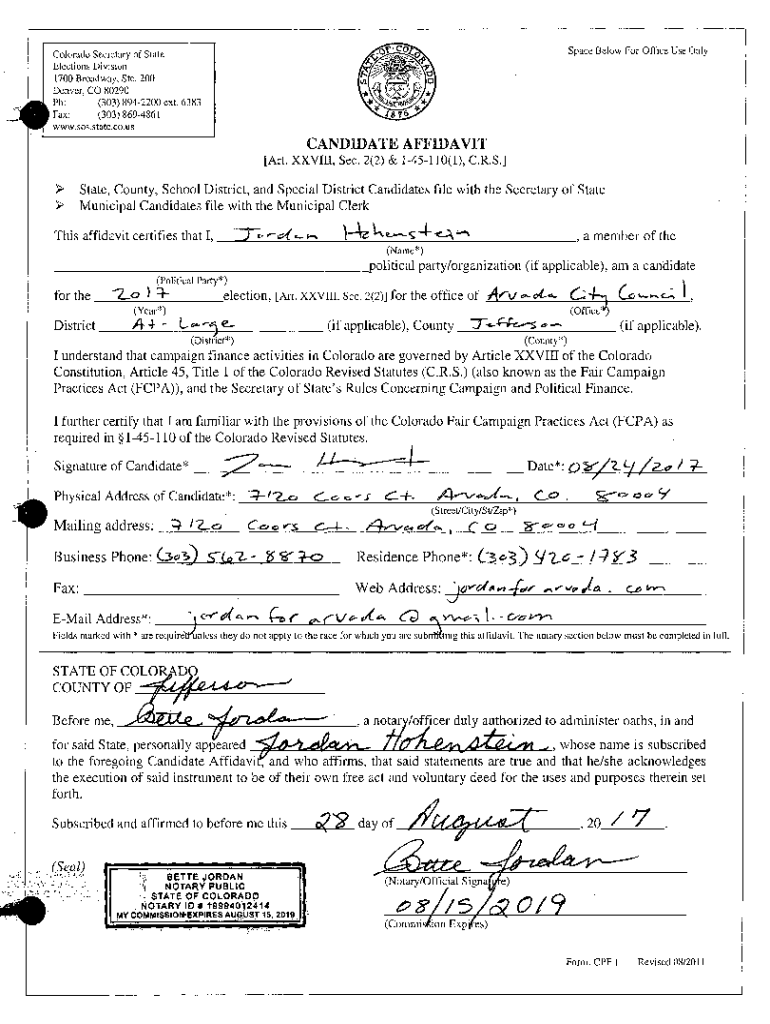 Colorado Secretary of State
Elections Division
1700 Broadway, Ste. 200
Denver, CO 80290
Ph: (303) 894-2200 ext. 6383
Fax: (303) 869-4861
www.sos.state.co.us
STATE OF COLORADO
1876
Space Below For Office Use Only
CANDIDATE AFFIDAVIT
[Art. XXVIII, Sec. 2(2) & 1-45-110(1), C.R.S.]
➢ State, County, School District, and Special District Candidates file with the Secretary of State
➢ Municipal Candidates file with the Municipal Clerk
This affidavit certifies that I, Jordan Hohenstein, a member of the
(Name*)
political party/organization (if applicable), am a candidate
(Political Party*)
for the 2017 election, [Art. XXVIII, Sec. 2(2)] for the office of Arvada City Council,
(Year*) (Office*)
District At-Large (if applicable), County Jefferson (if applicable).
(District*) (County*)
I understand that campaign finance activities in Colorado are governed by Article XXVIII of the Colorado
Constitution, Article 45, Title 1 of the Colorado Revised Statutes (C.R.S.) (also known as the Fair Campaign
Practices Act (FCPA)), and the Secretary of State's Rules Concerning Campaign and Political Finance.
I further certify that I am familiar with the provisions of the Colorado Fair Campaign Practices Act (FCPA) as
required in §1-45-110 of the Colorado Revised Statutes.
Signature of Candidate* Date*: 08/24/2017
Physical Address of Candidate*: 7120 Coors Ct. Arvada, CO. 80004
(Street/City/St/Zip*)
Mailing address: 7120 Coors Ct. Arvada, CO 80004
Business Phone: (303) 562-8870 Residence Phone*: (303) 420-1783
Fax: Web Address: jordanforarvada.com
E-Mail Address*: jordanforarvada@gmail.com
Fields marked with * are required unless they do not apply to the race for which you are submitting this affidavit. The notary section below must be completed in full.
STATE OF COLORADO
COUNTY OF Jefferson
Before me, Bette Jordan, a notary/officer duly authorized to administer oaths, in and
for said State, personally appeared Jordan Hohenstein, whose name is subscribed
to the foregoing Candidate Affidavit, and who affirms, that said statements are true and that he/she acknowledges
the execution of said instrument to be of their own free act and voluntary deed for the uses and purposes therein set
forth.
Subscribed and affirmed to before me this 28 day of August, 2017.
(Seal)
BETTE JORDAN
NOTARY PUBLIC
STATE OF COLORADO
NOTARY ID # 19994012414
MY COMMISSION EXPIRES AUGUST 15, 2019
Bette Jordan
(Notary/Official Signature)
08/15/2019
(Commission Expires)
Form CPF 1 Revised 08/2011